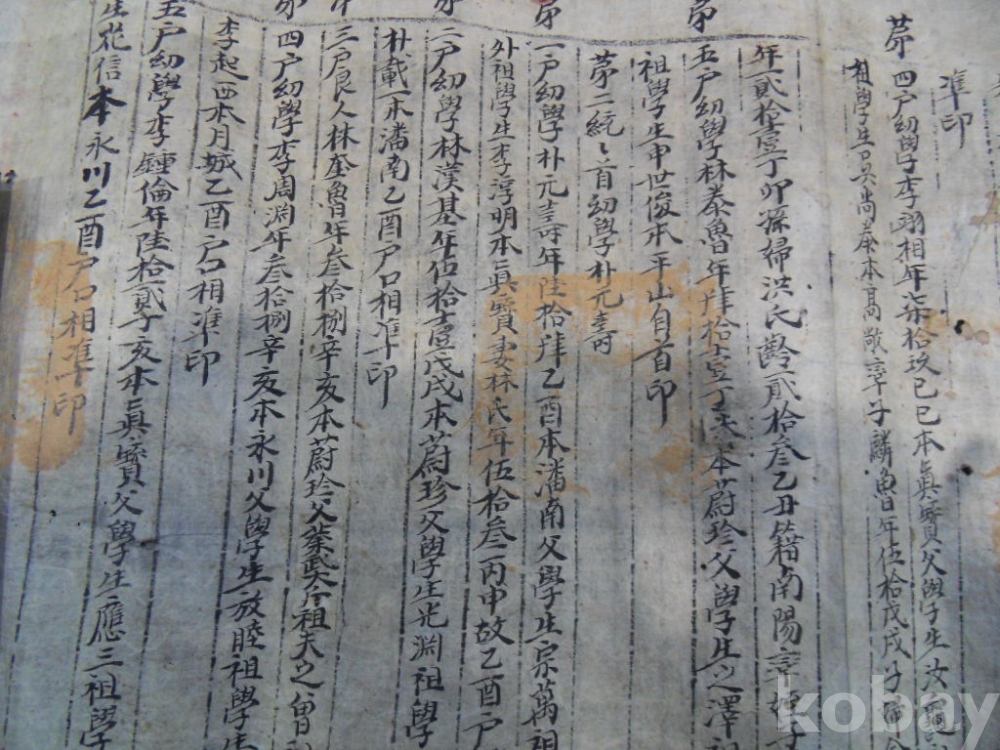 準印
第四戶幼學李翊相年柒拾玖己巳本眞寶父學生汝
祖學生吳尙泰本高敞率子麟魯年伍拾戊戌子
年貳拾壹丁卯孫婦洪氏齡貳拾叁乙丑籍南陽率
五戶幼學林泰魯年肆拾壹丁未本蔚珍父學生之澤祖
祖學生申世俊本平山自首印
第二統統首幼學朴元壽
一戶幼學朴元壽年陸拾肆乙酉本潘南父學生宗萬祖
外祖學生李淳明本眞寶妻林氏年伍拾叁丙申故乙酉戶
二戶幼學林漢基年伍拾壹戊戌本蔚珍父學生光淵祖學
朴載一本潘南乙酉戶口相準印
三戶良人林奎魯年叁拾捌辛亥本蔚珍父業武 祖夫之曾祖
四戶幼學李周淵年叁拾捌辛亥本永川父學生放睦祖學生
李起四本月城乙酉戶口相準印
五戶幼學李鍾倫年陸拾貳丁亥本眞寶父學生應三祖學
生花信本永川乙酉戶口相準印
kobay